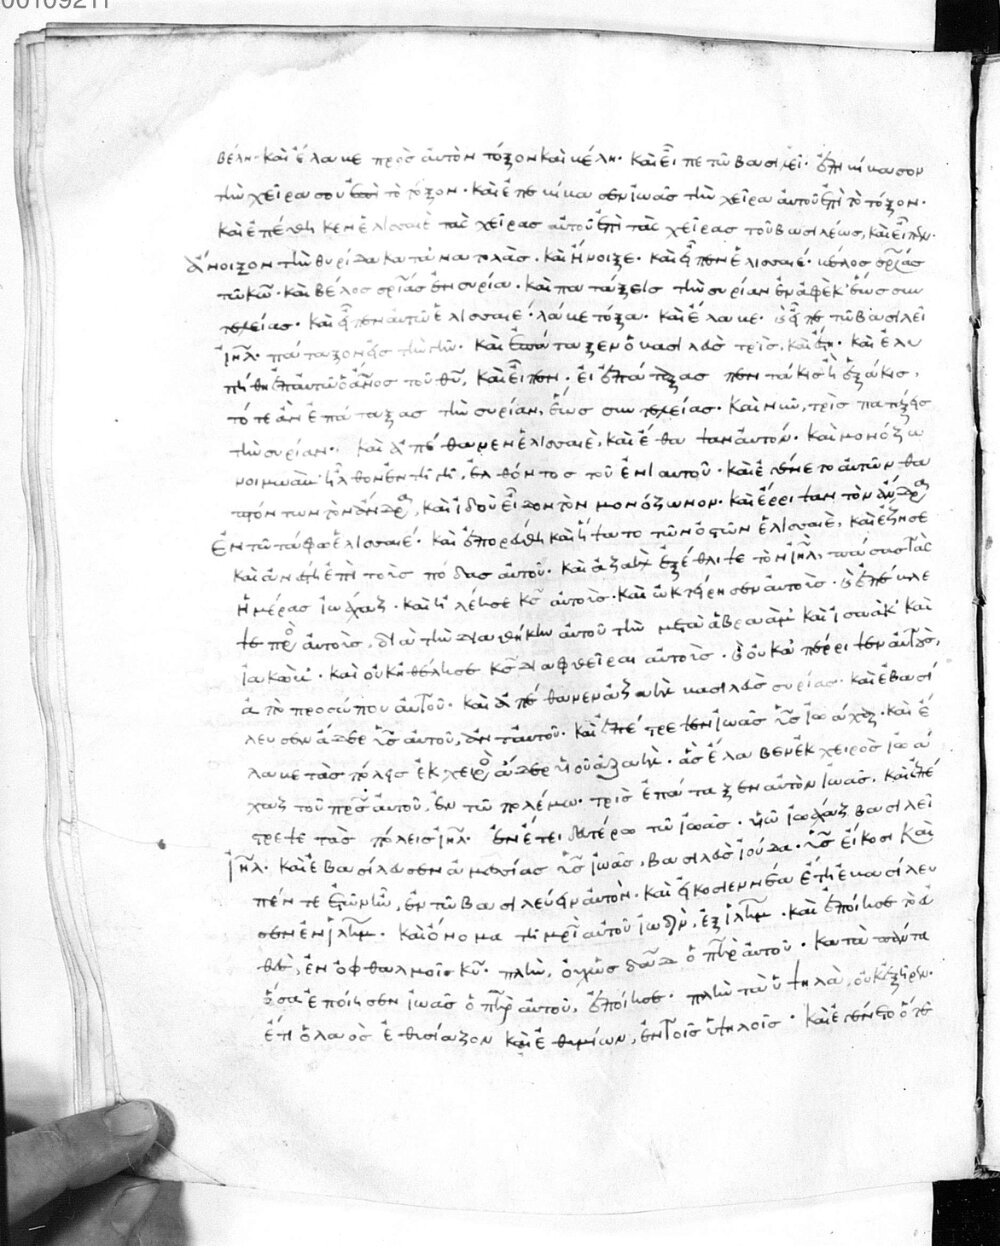 00109211
βέλη· καὶ ἔλαβε πρὸς ἀυτὸν τόξον καὶ βέλη· καὶ εἶπε τῶ βασιλεῖ· ἐπιβίβασον
τὴν χεῖρα σου ἐπὶ τὸ τόξον· καὶ ἐπεβίβασεν ἰωὰς τὴν χεῖρα ἀυτοῦ ἐπὶ τὸ τόξον·
καὶ ἐπέθηκεν ἐλισσαιὲ τὰς χεῖρας αὐτοῦ ἐπὶ τὰς χεῖρας τοῦ βασιλέως, καὶ εἶπεν·
ἄνοιξον τὴν θυρίδα κατὰ ἀνατολάς· καὶ ἤνοιξε· καὶ εἶπεν ἐλισσαιέ· βέλος σρίας
τῶ κω· καὶ βέλος σρίας ἐν συρία· καὶ πατάξεις τὴν συρίαν ἐν ἀφὲκ ἕως συν
τελείας· καὶ εἶπεν αὐτῶ ἐλισσαιέ· λάβε τόξα· καὶ ἔλαβε· καὶ εἶπε τῶ βασιλεῖ
ἰηλ· πάταξον εἰς τὴν γῆν· καὶ ἐπάταξεν ὁ βασιλεὺς τρὶς, καὶ ἔστη· καὶ ἐλυ
πήθη ἐπ αυτῶ ὁ ἄνος τοῦ θυ, καὶ εἶπεν· εἰ ἐπάταξας πεντάκις ἢ ἑξάκις,
τότε ἂν ἐπάταξας τὴν συρίαν, ἕως συντελείας· καὶ νῦν, τρὶς πατάξεις
τὴν συρίαν· καὶ ἀπέθανεν ἐλισσαιὲ, καὶ ἔθαψαν αυτόν· καὶ μονόζω
νοι μωὰβ ἦλθον ἐν τῆ γῆ, ἐλθόντος τοῦ ἐνιαυτοῦ· καὶ ἐγένετο αὐτῶν θα
πτόντων τὸν ἄνδρα, καὶ ἰδοὺ εἶδον τὸν μονόζωνον· καὶ ἔρριψαν τὸν ἄνδρα
ἐν τῶ τάφω ἐλισσαιέ· καὶ ἐπορεύθη καὶ ἥψατο τῶν ὀστῶν ἐλισσαιὲ, καὶ ἔζησε
καὶ ἀνέστη ἐπὶ τοὺς πόδας αὐτοῦ· καὶ ἀζαὴλ ἐξέθλιψε τὸν ἰηλ, πάσας τὰς
ἡμέρας ἰωάχαζ· καὶ ἠλέησε κς αὐτοὺς· καὶ ὠκτείρησεν αὐτοὺς· καὶ ἐπέβλε
ψε πρὸς αὐτοὺς, διὰ τὴν διαθήκην αὐτοῦ τὴν μετὰ ἀβραὰμ καὶ ἰσαὰκ καὶ
ἰακώβ· καὶ οὐκ ἠθέλησε κς διαφθεῖραι αὐτοὺς· καὶ οὐκ ἀπέρριψεν αὐτοὺς,
ἀπὸ προσώπου αὐτοῦ· καὶ ἀπέθανεν ἀζαὴλ βασιλεὺς συρίας· καὶ ἐβασί
λευσεν ἄδερ υς αὐτοῦ, ἀντ αυτοῦ· καὶ ἐπέστρεψεν ἰωὰς υς ἰωάχαζ· καὶ ἔ
λαβε τὰς πόλεις ἐκ χειρὸς ἄδερ υοῦ ἀζαὴλ· ἃς ἔλαβεν ἐκ χειρὸς ἰωά
χαζ τοῦ πρς αὐτοῦ, ἐν τῶ πολέμω· τρὶς ἐπάταξεν αὐτὸν ἰωάς, καὶ ἐπέ
στρεψε τὰς πόλεις ἰηλ· ἐν ἔτει δευτέρω τῶ ἰωὰς· υῶ ἰωάχαζ βασιλεῖ
ἰηλ· καὶ ἐβασίλευσεν ἀμεσίας υς ἰωὰς, βασιλεὺς ἰούδα· υς εἴκοσι καὶ
πέντε ἐτῶν ἦν, ἐν τῶ βασιλεύειν αυτὸν· καὶ εἴκοσι ἐννέα ἔτη ἐβασίλευ
σεν ἐν ἰλημ· καὶ ὄνομα τῆ μρὶ αὐτοῦ ἰωδὴν, ἐξ ἰλημ· καὶ ἐποίησε τὸ ἀ
θὲς, ἐν ὀφθαλμοῖς κυ· πλὴν, οὐχ ὡς δαυδ ὁ πηρ ἀυτοῦ· κατὰ πάντα
ὅσα ἐποίησεν ἰωὰς ὁ πηρ ἀυτοῦ, ἐποίησε· πλὴν τὰ ὑψηλὰ, οὐκ ἐξῆρεν·
ἔτι ὁ λαὸς ἐθυσίαζον καὶ ἐθυμίων, ἐν τοῖς ὑψηλοῖς· καὶ ἐγένετο ὅτε